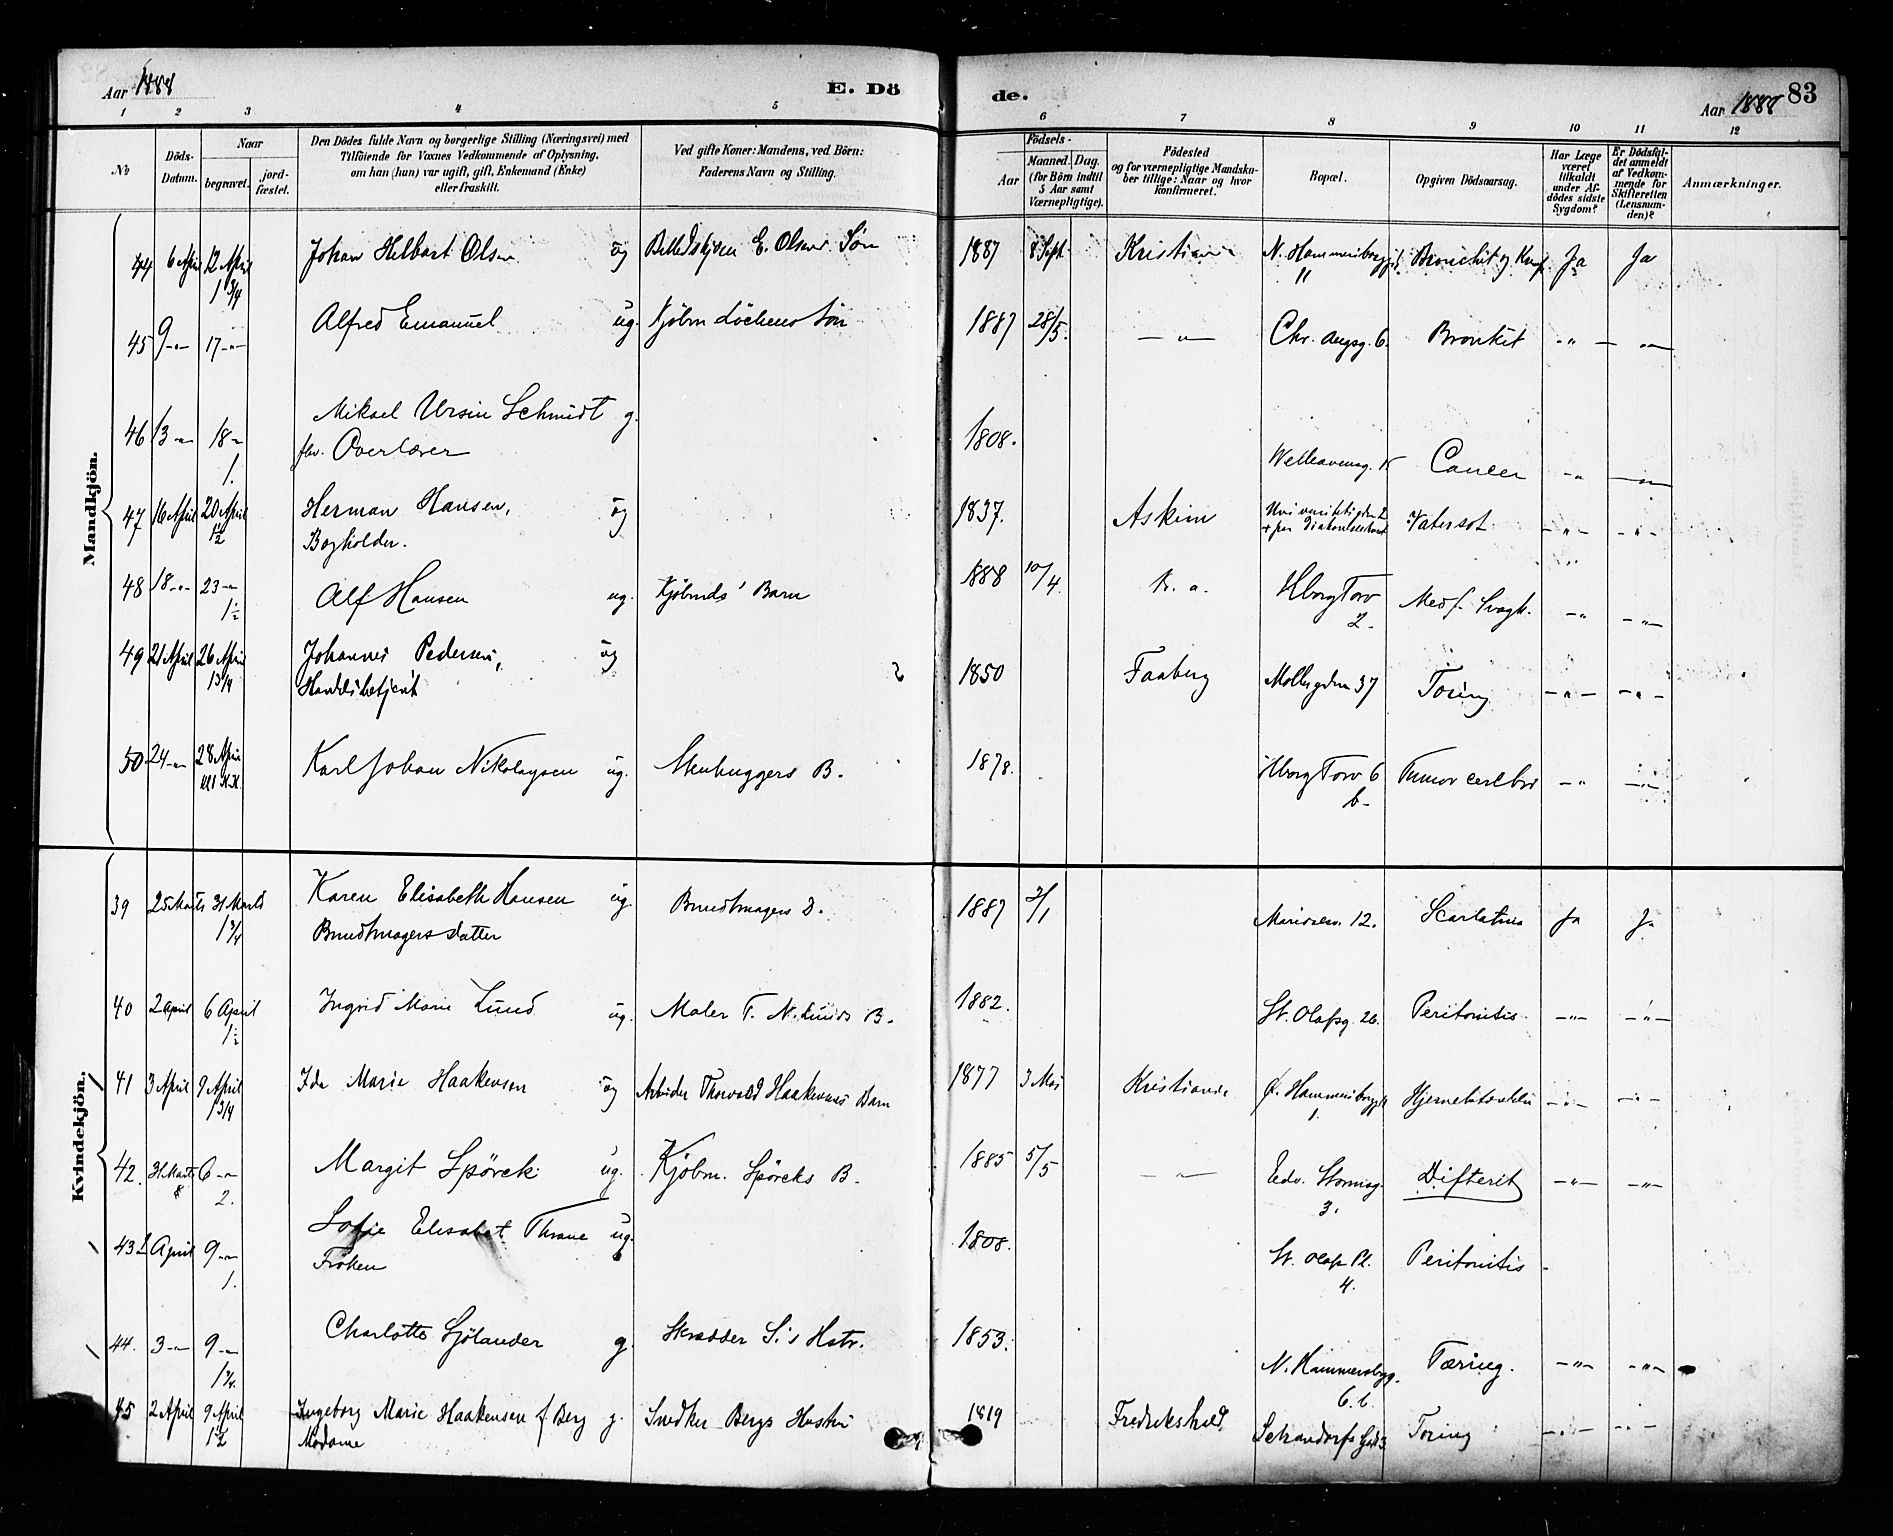 Aar 1888
E. Dö
de.
Aar 1888
83
1 2 3 4 5 6 7 8 9 10 11 12
№
Döds-Datum.
Naar
begravet.
jord-fæstet.
Den Dödes fulde Navn og borgerlige Stilling (Næringsvei) med
Tilföiende for Voxnes Vedkommende af Oplysning,
om han (hun) var ugift, gift, Enkemand (Enke)
eller fraskilt.
Ved gifte Koner: Mandens, ved Börn:
Faderens Navn og Stilling.
Födsels-
Aar
Maaned.
Dag.
(for Börn indtil
5 Aar samt
Værnepligtige).
Födested
og for værnepligtige Mandska-
ber tillige: Naar og hvor
konfirmeret.
Bopæl.
Opgiven Dödsaarsag.
Har Læge
været
tilkaldt
under Af-
dödes sidste
Sygdom?
Er Dödsfal-
det anmeldt
af Vedkom-
mende for
Skifteretten
(Lensman-
den)?
Anmærkninger.
Mandkjön.
44 6 April 12 April Johan Helbart Olsen ug E. Olsens Sön 1887 8 Sept. Kristiania N. Hammersborggd. Bronchit og Ja Ja
1 3/4 11
45 9 -"- 17 -"- Alfred Emanuel ug. Kjöbm Löchens Sön 1887 28/5. -"- Chr. Augsg. 6. Bronkit -"- -"-
46 13 -"- 18 -"- Mikael Ursin Schmidt g. 1808. 15 Cancer -"- -"-
1. fhv. Overlærer
47 16 April 20 April Herman Hansen, ug 1837. Askim Universitetsgden 2 Vatersot -"- -"-
1 1/2 Bogholder.
48 18 -"- 23 -"- Alf Hansen ug. Kjöbmds' Barn 1888 10/4. Kr. a. Hborg Torv Medf. Svagh. -"- -"-
1 1/2 2.
49 21 April 26 April Johannes Pedersen, ug 1850 Faaberg Mollergden 37 Tæring -"- -"-
1 3/4 Handelsbetjent
50. 24 -"- 28 April Karl Johan Nikolaysen ug. Stenhuggers B. 1878. Hborg Torv 6 Tumor cerebri -"- -"-
b.
Kvindekjön.
39 25 Marts 31 Marts Karen Elisabeth Hansen ug. Bundtmagers D. 1887 2/1 Maridalsv. 12. Scarlatina Ja Ja
1 3/4 Bundtmagersdatter
40 2 April 6 April Ingrid Marie Lund ug. Maler T. N. Lunds B. 1882. St. Olafsg. 26. Peritonitis. -"- -"-
1 1/2
41 3 April 9 April Ida Marie Haakensen ug Arbeider Thorvald Haakensens Barn 1877 3 Mai Kristiania Ø. Hammersborggd -"- -"-
1 3/4 1.
42. 31 Marts 6 -"- Margit Spörck ug. Kjöbm. Spörcks B. 1885 5/5 -"- Edv. Stormsg. Difterit -"- -"-
2. 3.
43 April 9 -"- Sofie Elisabet Thrane ug. 1808. St. Olafs Pl. Peritonitis
1. Fröken 4.
44. 3 -"- 9 -"- Charlotte Sjölander g. Skrædder S.'s Hstr. 1853. N. Hammersbgg. Tæring. -"- -"-
1 3/4. 6. b.
45 2 April 9 April Ingeborg Marie Haakensen f. Berg g. Snedker Bergs Hustru 1819 Fredrikshald Schandorfs Gad 3 Tæring -"- -"-
1 1/2 Madame